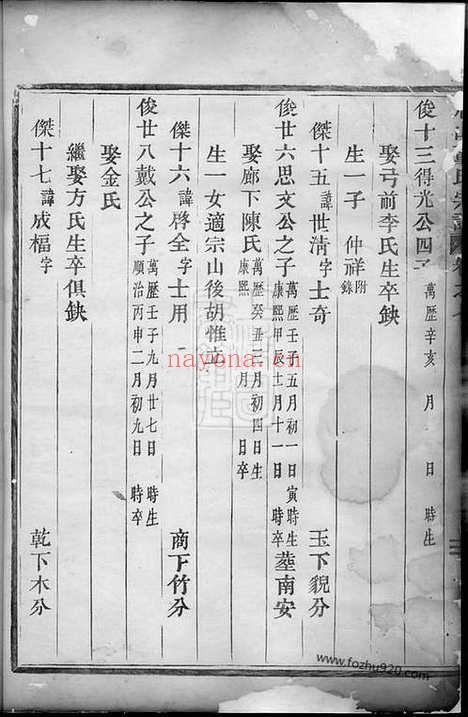 俊十三得光公四子 萬歷辛亥 月 日 時生
娶弓前李氏生卒缺
生一子 仲祥附錄
傑十五諱世清字士奇 玉下貌分
俊廿六思文公之子萬歷壬子五月初一日寅時生康熙甲辰士月十一日 時卒葬南安
娶廊下陳氏萬歷癸丑三月初四日生康熙 月 日卒
生一女適宗山後胡惟
傑十六諱啓全字士用 商下竹分
俊廿八戴公之子萬歷壬子九月廿七日 時生順治丙申二月初九日 時卒
娶金氏
繼娶方氏生卒俱缺
傑十七諱成福字 乾下木分
nayona.cn
www.fozhu920.com